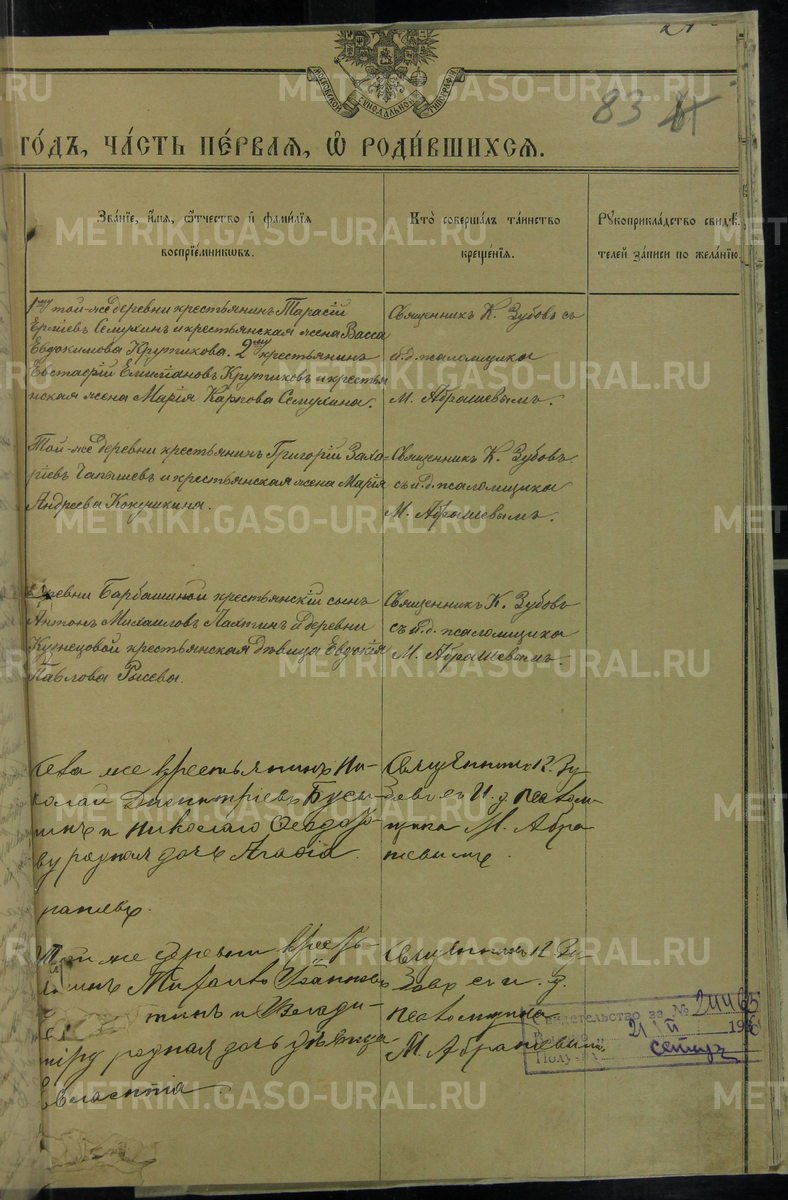 83
МОСКОВСКОЙ СѴНОДАЛЬНОЙ ТИПОГРАФІИ
ГО́ДЪ, ЧА́СТЬ ПЕ́РВАЯ, Ѡ҆ РОДИ́ВШИХСЯ.
Зва́нїе, и҆́мя, ѻ҆́тчество и҆ фами́лїя
воспрїе́мниковъ.
Кто̀ соверша́лъ та́инство
креще́нїя.
Рꙋкоприкла́дство свидѣ́-
телей за́писи по жела́нїю.
1му той-же деревни крестьянинъ Тарасій
Ермиевъ Семухинъ и крестьянская жена Васса
Евдокимова Крутикова. 2му крестьянинъ
Евстафій Емилiановъ Крутиковъ и крестья
нская жена Марія Карпова Семухина.
Священникъ К. Зубовъ съ
и. д. псаломщика
М. Абрашевымъ.
Той-же деревни крестьянинъ Григорій Заха-
ріевъ Чапышевъ и крестьянская жена Марія
Андреева Кокушкина.
Священникъ К. Зубовъ
съ и. д. псаломщика
М. Абрашевымъ.
Деревни Барбашиной крестьянскій сынъ
Антонъ Михаиловъ Лаптинъ и деревни
Кузнецовой крестьянская дѣвица Евдокія
Павлова Рысева.
Священникъ К. Зубовъ
съ и. д. псаломщика
М. Абрашевымъ.
Села же крестьянинъ Ни-
колай Димитріевъ
и Николаю Ѳеодоро-
ву родная дочь Агафія
Священникъ К. Зу-
бовъ съ И. д. псалом-
щика М. Абра
шевымъ.
Той же деревни кресть-
янинъ Михаилъ
тинъ и
родная дочь дѣвица
Священникъ К. Зу-
бовъ съ и. д.
псаломщика
М. Абрашевымъ.
Свидетельство за № 24465
METRIKI.GASO-URAL.RU